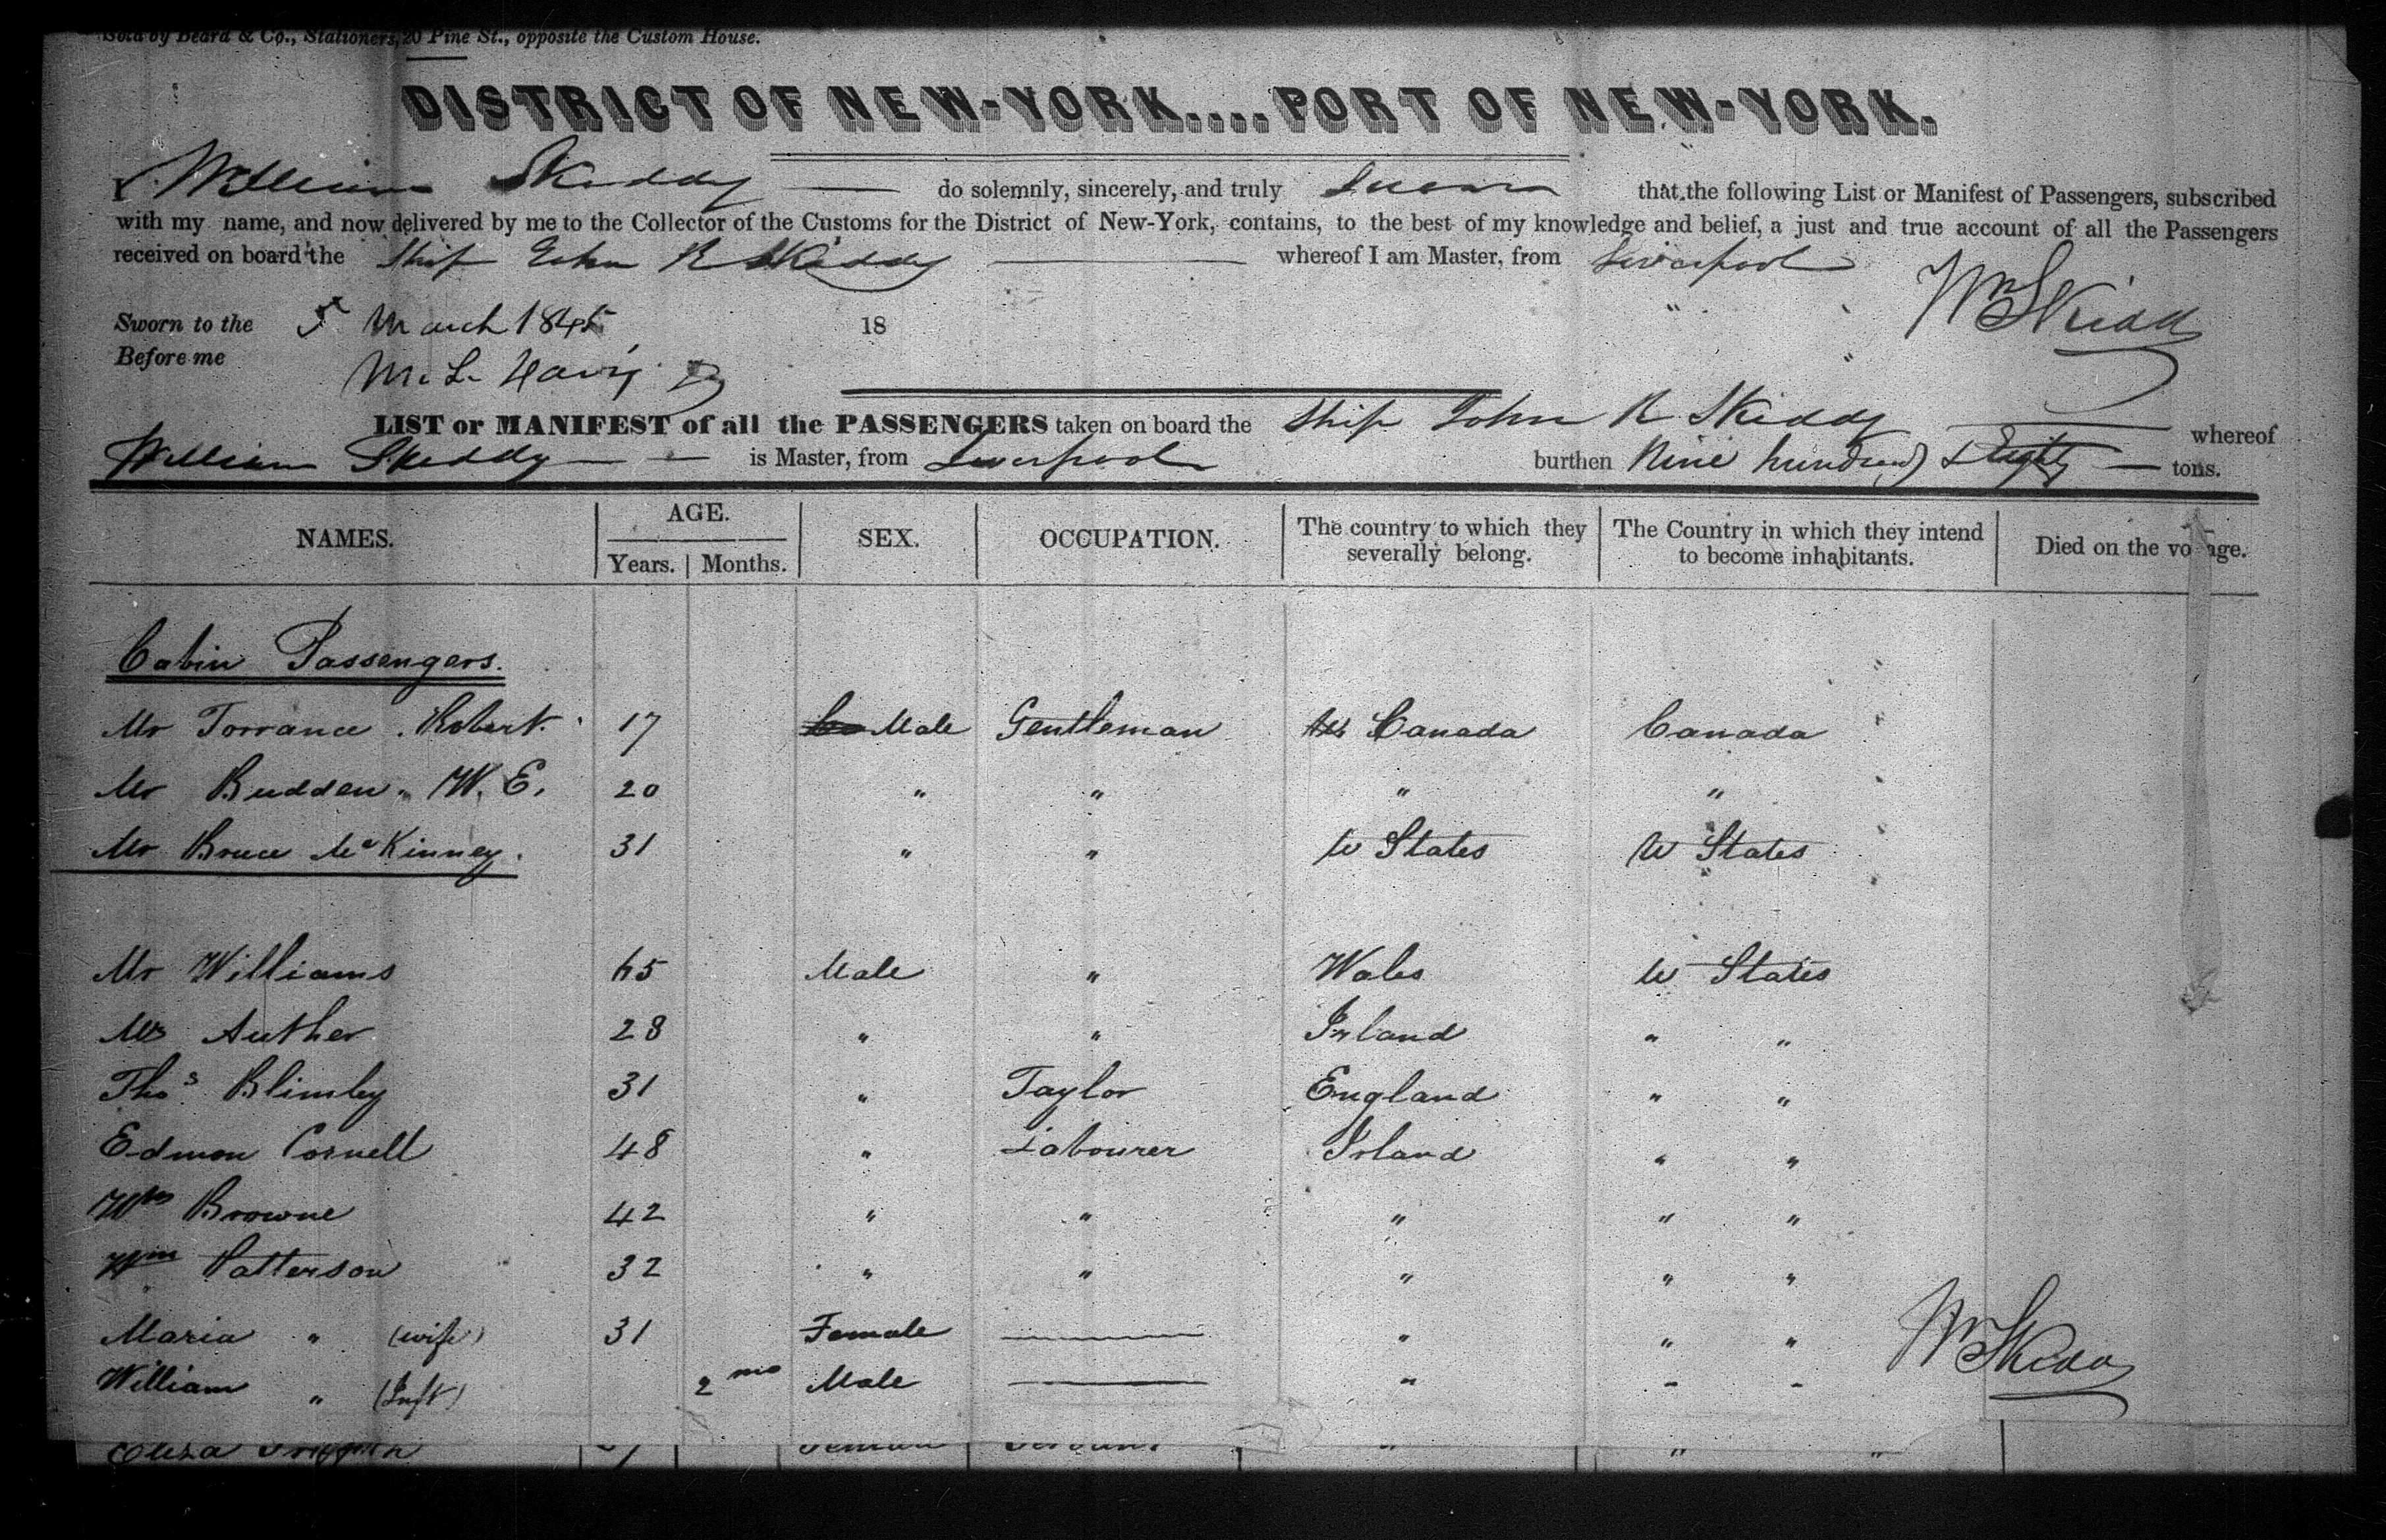 Sold by Beard & Co., Stationers, 20 Pine St., opposite the Custom House.
DISTRICT OF NEW-YORK....PORT OF NEW-YORK.
I. William Skiddy — do solemnly, sincerely, and truly Swear that the following List or Manifest of Passengers, subscribed
with my name, and now delivered by me to the Collector of the Customs for the District of New-York, contains, to the best of my knowledge and belief, a just and true account of all the Passengers
received on board the Ship John R Skiddy — whereof I am Master, from Liverpool
Wm Skiddy
Sworn to the 5 March 1845 18
Before me
M. L.
LIST or MANIFEST of all the PASSENGERS taken on board the Ship John R Skiddy — whereof
William Skiddy — — is Master, from Liverpool burthen Nine hundred & Eighty — tons.
NAMES. AGE. Years. Months. SEX. OCCUPATION. The country to which they severally belong. The Country in which they intend to become inhabitants. Died on the voyage.
Cabin Passengers.
Mr Torrance. Robert. 17 Male Gentleman Canada Canada
Mr Budden. W. E. 20 " " " "
Mr Bruce McKinney. 31 " " U States U States
Mr Williams 65 Male " Wales U States
Mr Auther 28 " " Irland " "
Thos Blimley 31 " Taylor England " "
Edmon Cornell 48 " Labourer Irland " "
Wm Browne 42 " " " " "
Wm Patterson 32 " " " " "
Maria " (wife) 31 Female — " " "
William " (Inft) 2 mo Male — " " "
Wm Skiddy
Eliza " " "